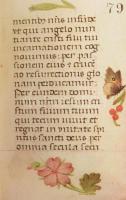 79
mentibus nris infude
ut qui angelo nun
tiante cristi filii tui
incarnationem cog
novimus: per pas
sionem eius et cruce
ad resurrectionis glo
riam perducamur:
Per eundem domi
num nrm iesum cri
stum filium tuum
qui tecum vivit et
regnat in unitate spi
ritus sancti deus per
omnia secula secu